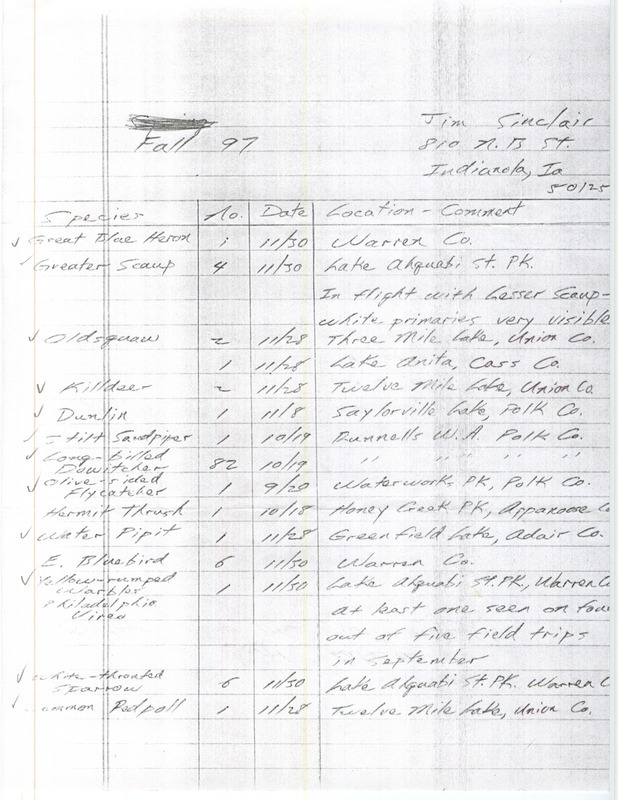 Fall 97
Jim Sinclair
810 N. B St.
Indianola, Ia
50125
Species No. Date Location - Comment
✓ Great Blue Heron 1 11/30 Warren Co.
✓ Greater Scaup 4 11/30 Lake Ahquabi St. PK.
In flight with Lesser Scaup-
white primaries very visible
✓ Oldsquaw 2 11/28 Three Mile Lake, Union Co.
1 11/28 Lake Anita, Cass Co.
✓ Killdeer 2 11/28 Twelve Mile Lake, Union Co
✓ Dunlin 1 11/8 Saylorville Lake, Polk Co.
✓ Stilt Sandpiper 1 10/19 Runnells W.A. Polk Co.
✓ Long-billed
Dowitcher 82 10/19 " " " " "
✓ Olive-sided
Flycatcher 1 9/20 Waterworks PK, Polk Co.
Hermit Thrush 1 10/18 Honey Creek PK, Appanoose Co
✓ Water Pipit 1 11/28 Greenfield Lake, Adair Co.
E. Bluebird 6 11/30 Warren Co.
✓ Yellow-rumped
Warbler 1 11/30 Lake Ahquabi St. PK., Warren C
Philadelphia
Vireo at least one seen on four
out of five field trips
in september
✓ White-throated
Sparrow 6 11/30 Lake Ahquabi St. PK. Warren C
✓ Common Redpoll 1 11/28 Twelve Mile Lake, Union Co.